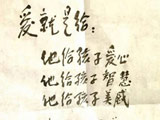 爱就是给：
他给孩子爱心
他给孩子智慧
他给孩子美感